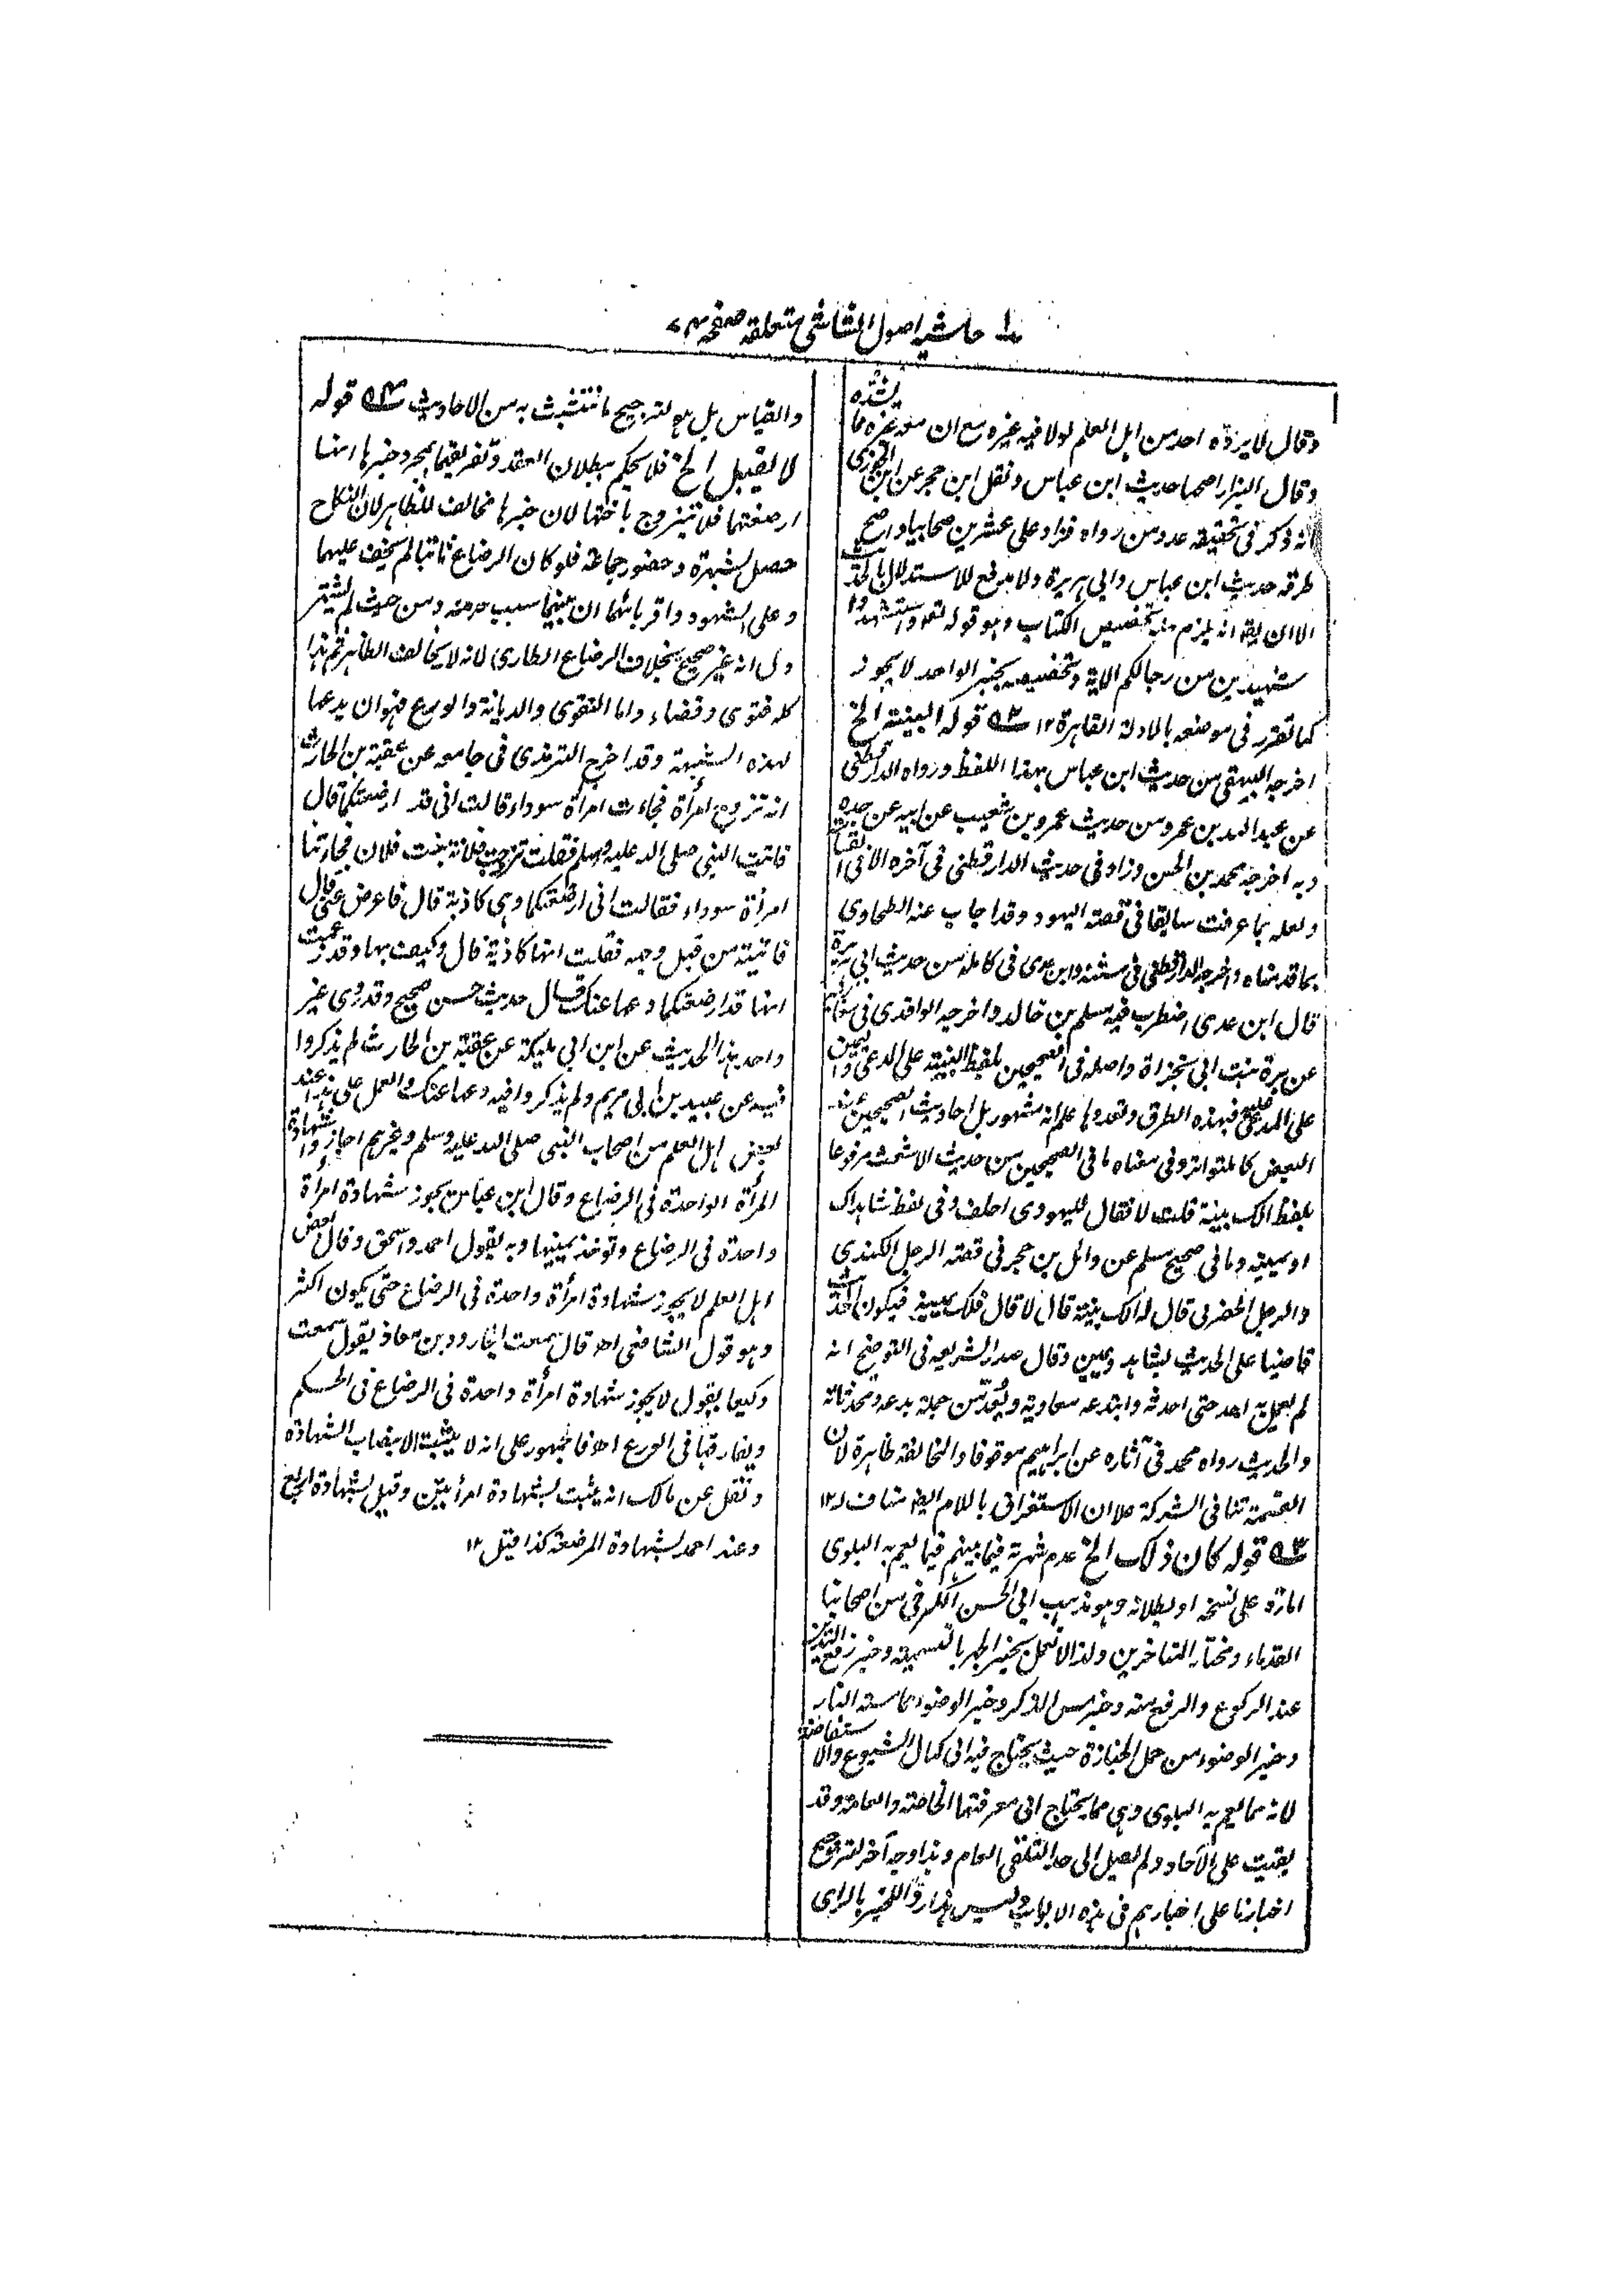 حاشیہ اصول الشاشی متعلقہ صفحہ
وقال لا يرده احد من اهل العلم لو لا فيه غيره مع ان معه غيره مما يشده
وقال البزار اصحها حديث ابن عباس ونقل ابن حجر عن ابن الجوزي
انه ذكر في تحقيقه عدد من رواه فزاد على عشرين صحابيا واصح
طرقه حديث ابن عباس وابي هريرة ولا مدفع للاستدلال بالحديث
الا ان يقال انه يلزم منه تخصيص الكتاب وهو قوله تعالى واستشهدوا
شهيدين من رجالكم الاية وتخصيصه بخبر الواحد لا يجوز
كما تقرر في موضعه بالادلة القاهرة ١٢ ٢ قوله البينة الخ
اخرجه البيهقي من حديث ابن عباس بهذا اللفظ ورواه الدارقطني
عن عبد الله بن عمر ومن حديث عمرو بن شعيب عن ابيه عن جده
وبه اخرجه محمد بن الحسن وزاد في حديث الدارقطني في آخره الا في القسامة
ولعله بما عرفت سابقا في قصة اليهود وقد اجاب عنه الطحاوي
بما قدمناه واخرجه الدارقطني في سننه وابن عدي في كامله من حديث ابي هريرة
قال ابن عدي اضطرب فيه مسلم بن خالد واخرجه الواقدي في مغازيه
عن برة بنت ابي تجراة واصله في الصحيحين بلفظ البينة على المدعي واليمين
على المدعى عليه فبهذه الطرق وتعددها علم انه مشهور بل احاديث الصحيحين عند
البعض كالمتواتر وفي معناه ما في الصحيحين من حديث الاشعث مرفوعا
بلفظ الك بينة قلت لا فقال لليهودي احلف وفي لفظ شاهداك
او يمينه وما في صحيح مسلم عن وائل بن حجر في قصة الرجل الكندي
والرجل الحضرمي قال له الك بينة قال لا قال فلك يمينه فيكون الحديث
قاضيا على الحديث بشاهد ويمين وقال صدر الشريعه في التوضيح انه
لم يعمل به احد حتى احدثه وابتدعه معاوية ويعد من جملة بدعه ومحدثاته
والحديث رواه محمد في آثاره عن ابراهيم موقوفا والمخالفة ظاهرة لان
القسمة تنافي الشركة ولان الاستغراق باللام ايضا مناف له ١٢
٣ قوله كان ذلك الخ عدم شهرته فيما بينهم فيما يعم به البلوى
امارة على نسخه او بطلانه وهو مذهب ابي الحسن الكرخي من اصحابنا
القدماء ومختار المتأخرين ولذا لا نعمل بخبر الجهر بالتسمية وخبر رفع اليدين
عند الركوع والرفع منه وخبر مس الذكر وخبر الوضوء مما مسته النار
وخبر الوضوء من حمل الجنازة حيث يحتاج فيه الى كمال الشيوع والاستفاضة
لانه مما يعم به البلوى وهي مما يحتاج الى معرفتها الخاصة والعامة وقد
بقيت على الآحاد ولم يصل الى حد التلقي العام وهذا وجه آخر لترجيح
اخبارنا على اخبارهم في هذه الابواب وليس هذا رد الخبر بالراى
والقياس بل هو لترجيح ما نتشبث به من الاحاديث ٤ قوله
لا يقبل الخ فلا يحكم ببطلان العقد وتفريقهما بمجرد خبرها انها
ارضعتهما فلا تيزوج باختها لان خبرها مخالف للظاهر لان النكاح
حصل بشهرة وحضور جماعة فلو كان الرضاع ثابتا لم يخف عليهما
وعلى الشهود واقربائهما ان بينهما سبب حرمة ومن حيث لم يشتهر
دل انه غير صحيح بخلاف الرضاع الطارى لانه لا يخالف الظاهر ثم هذا
كله فتوى وقضاء واما التقوى والديانة والورع فهو ان يدعها
لهذه الشبهة وقد اخرج الترمذي في جامعه عن عقبة بن الحارث
انه تزوج امرأة فجاءت امرأة سوداء قالت اني قد ارضعتكما قال
فاتيت النبي صلى الله عليه وسلم فقلت تزوجت فلانة بنت فلان فجاءتنا
امرأة سوداء فقالت اني ارضعتكما وهي كاذبة قال فاعرض عني قال
فاتيته من قبل وجهه فقلت انها كاذبة قال وكيف بها وقد زعمت
انها قد ارضعتكما دعها عنك قال حديث حسن صحيح وقد روى غير
واحد هذا الحديث عن ابن ابي مليكة عن عقبة بن الحارث لم يذكروا
فيه عن عبيد بن ابي مريم ولم يذكروا فيه دعها عنك والعمل على هذا عند
بعض اهل العلم من اصحاب النبي صلى الله عليه وسلم وغيرهم اجازوا شهادة
المرأة الواحدة في الرضاع وقال ابن عباس يجوز شهادة امرأة
واحدة في الرضاع وتوخذ يمينها وبه يقول احمد واسحق وقال بعض
اهل العلم لا يجوز شهادة امرأة واحدة في الرضاع حتى يكون اكثر
وهو قول الشافعي اه قال سمعت الجارود بن معاذ يقول سمعت
وكيعا يقول لا يجوز شهادة امرأة واحدة في الرضاع في الحكم
ويفارقها في الورع اه فالجمهور على انه لا يثبت الا بنصاب الشهادة
ونقل عن مالك انه يثبت بشهادة امرأتين وقيل بشهادة اربع
وعند احمد بشهادة المرضعة كذا قيل ١٢